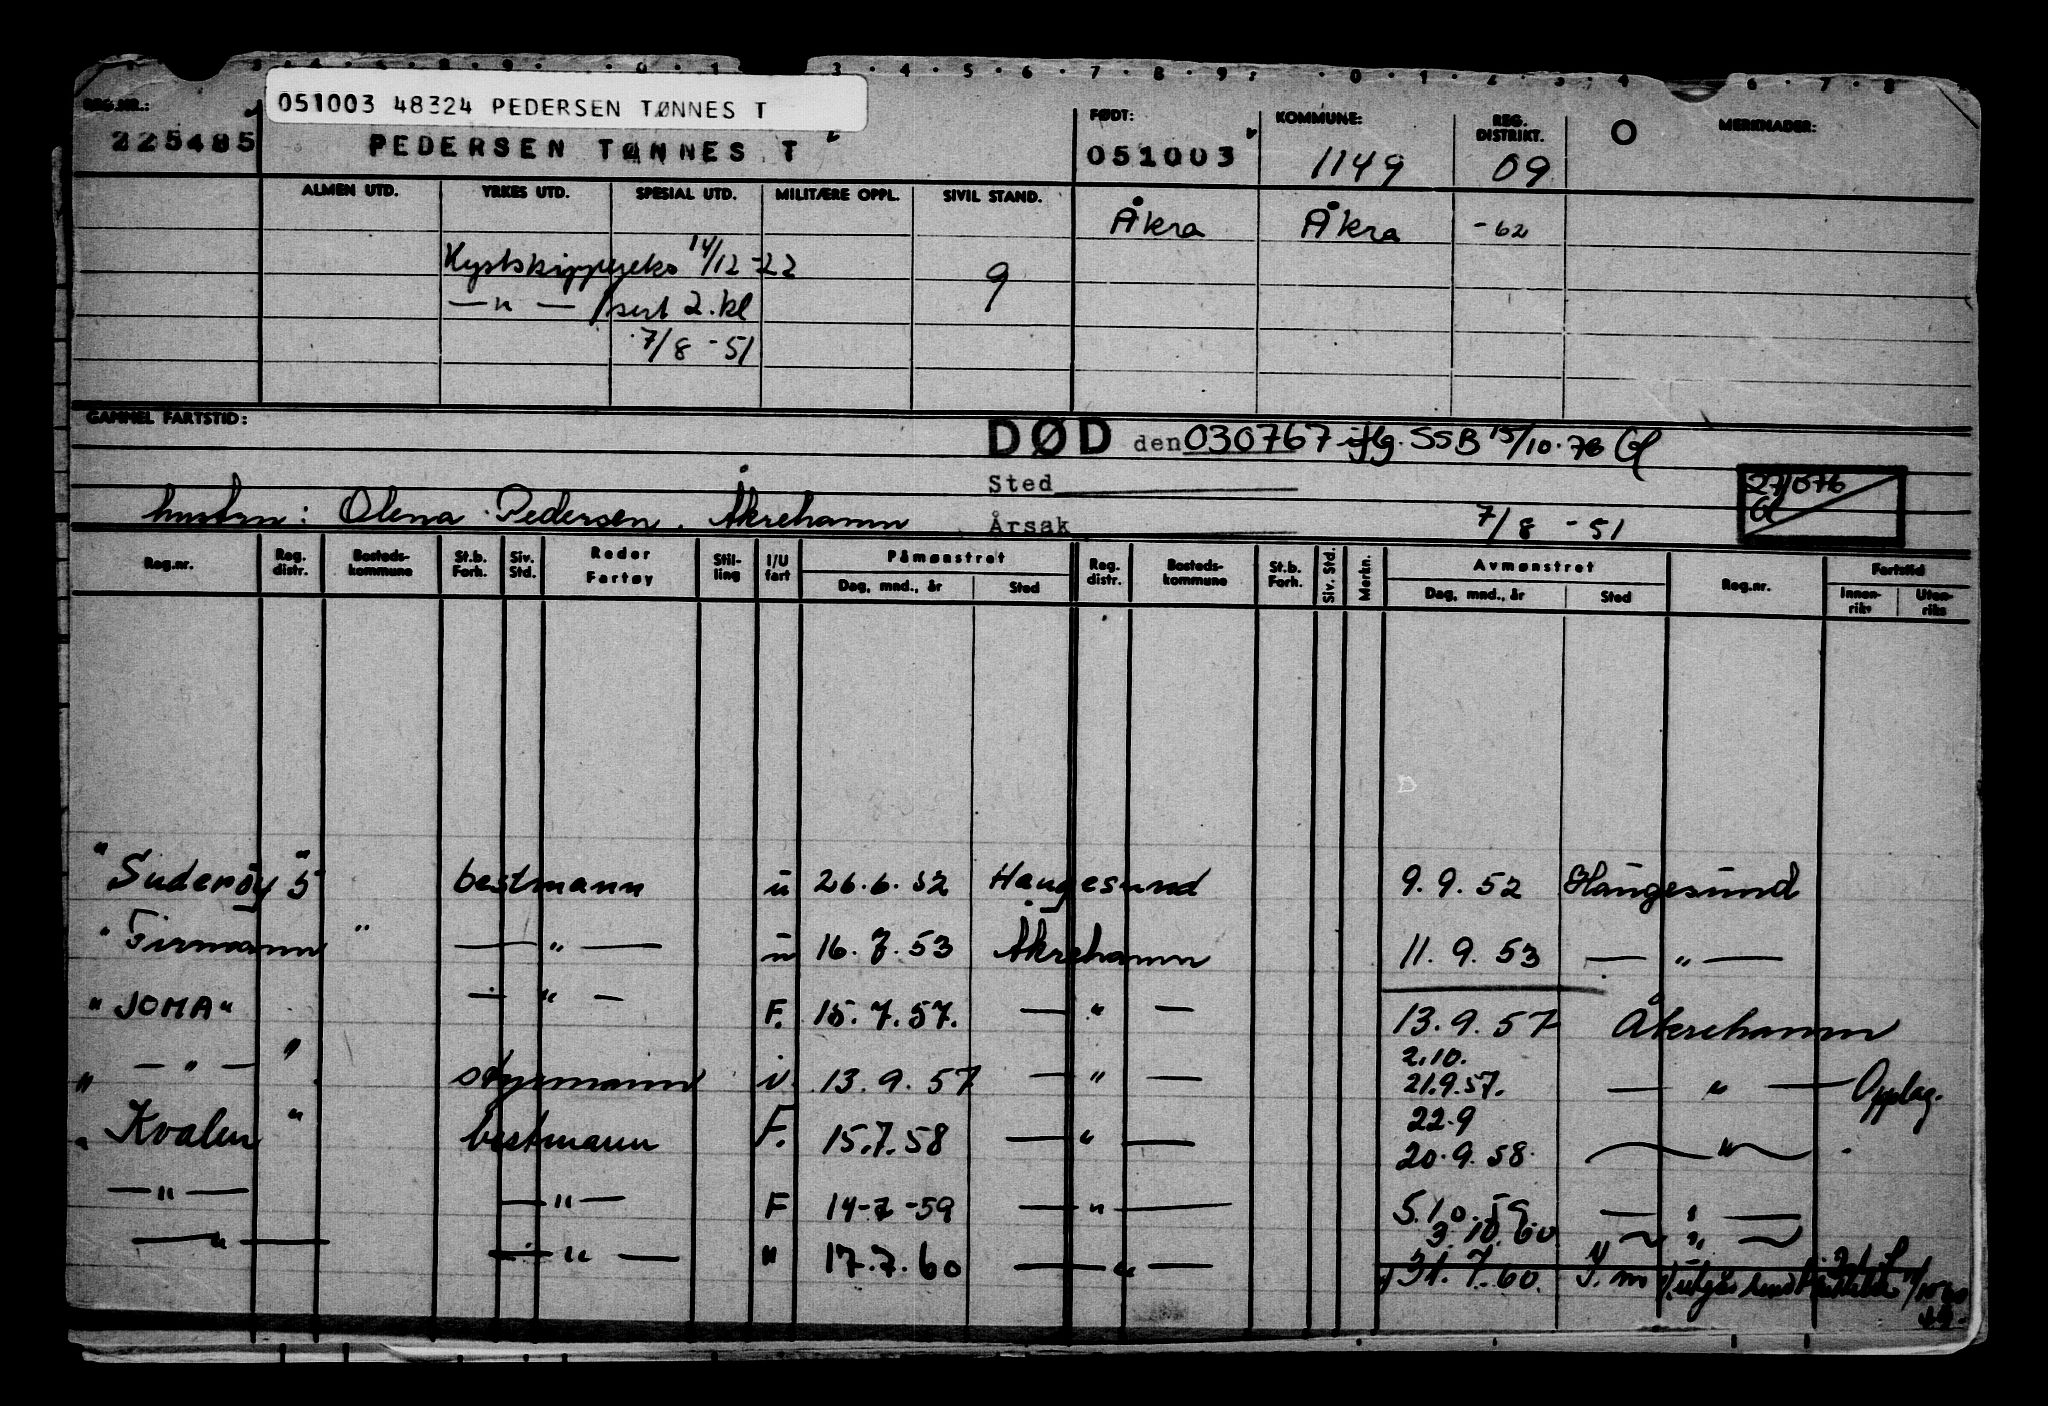 051003 48324 PEDERSEN TØNNES T
REG.NR.: FØDT: KOMMUNE: REG. DISTRIKT. MERKNADER:
225485 PEDERSEN TØNNES T 051003 1149 09
ALMEN UTD. YRKES UTD. SPESIAL UTD. MILITÆRE OPPL. SIVIL STAND.
Åkra Åkra -62
Kystskippereks 14/12-22 9
—"— sert 2. kl
7/8-51
GAMMEL FARTSTID:
DØD den 030767 iflg. SSB 15/10.76
Sted
hustru: Olena Pedersen. Åkrehamn
Årsak 7/8 -51
Reg.nr. Reg. distr. Bosteds-kommune St.b. Forh. Siv. Std. Reder Fartøy Stil-ling I/U fart Påmønstret Dag, mnd., år Sted Reg. distr. Bosteds-kommune St.b. Forh. Siv. Std. Merkn. Avmønstret Dag, mnd., år Sted Reg.nr. Fartstid Innen-riks Uten-riks
"Suderøy 5" bestmann u 26.6.52 Haugesund 9.9.52 Haugesund
"Firmann" —"— u 16.7.53 Åkrehamn 11.9.53 —"—
"JOMA" —"— F. 15.7.57. —"— 13.9.57 Åkrehamn
—"— styrmann i. 13.9.57 —"— 2.10. 21.9.57. —"— Opplag.
"Kvalen" bestmann F. 15.7.58 —"— 22.9 20.9.58. —"—
—"— —"— F 14-7-59 —"— 5.10.59 —"—
—"— —"— " 17.7.60 —"— 3.10.60 —"—
31.7.60.